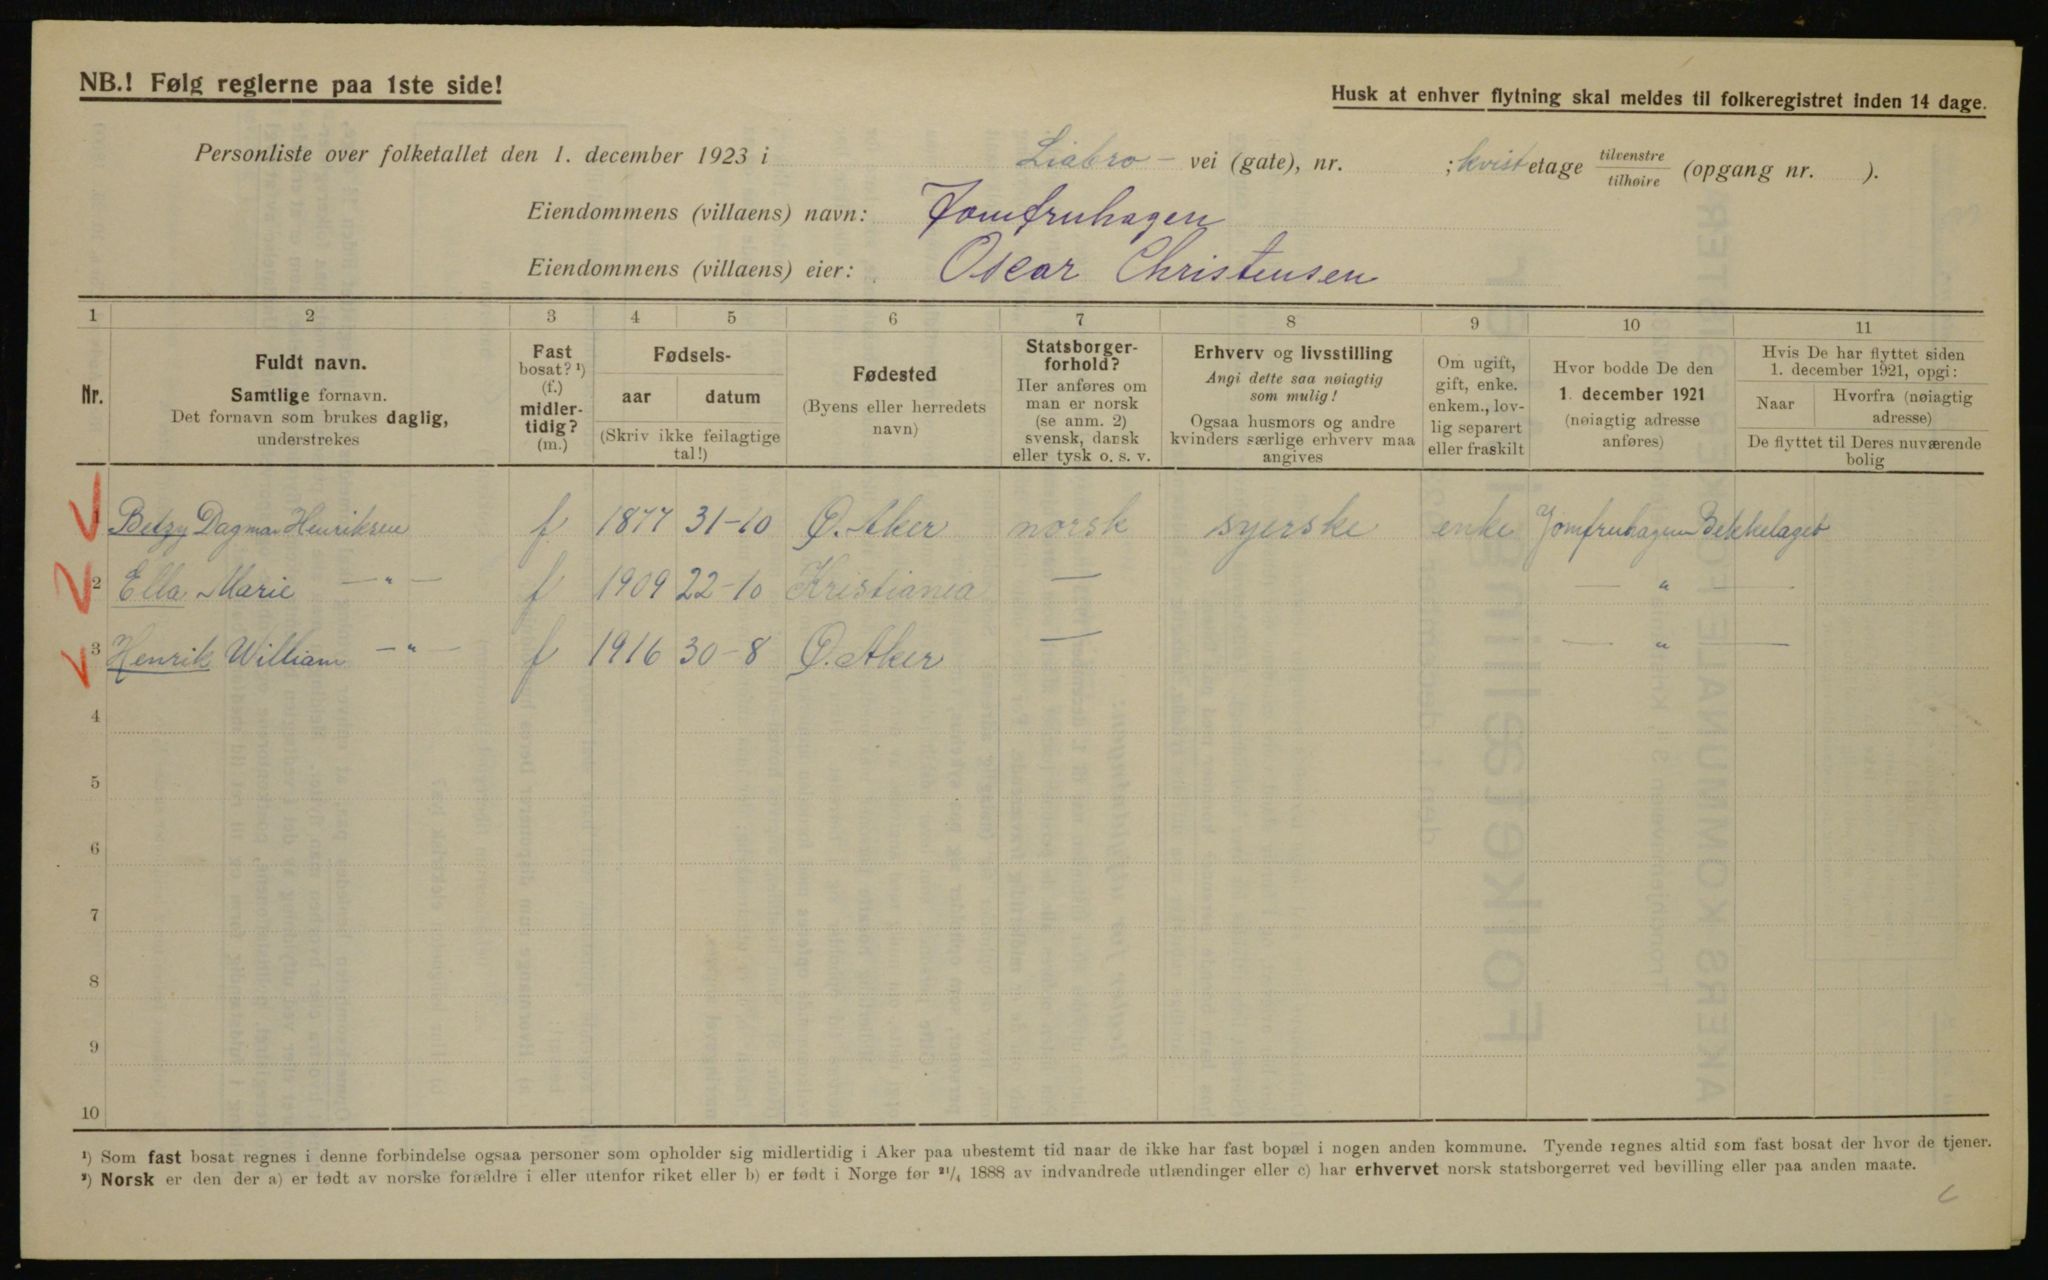 NB.! Følg reglerne paa 1ste side!
Husk at enhver flytning skal meldes til folkeregistret inden 14 dage.
Personliste over folketallet den 1. december 1923 i Liabro- vei (gate), nr. ; kvist etage tilvenstre / tilhøire (opgang nr. ).
Eiendommens (villaens) navn: Jomfruhagen
Eiendommens (villaens) eier: Oscar Christensen
1 2 3 4 5 6 7 8 9 10 11
Nr.
Fuldt navn.
Samtlige fornavn.
Det fornavn som brukes daglig,
understrekes
Fast
bosat? ¹)
(f.)
midler-
tidig?
(m.)
Fødsels-
aar datum
(Skriv ikke feilagtige
tal!)
Fødested
(Byens eller herredets
navn)
Statsborger-
forhold?
Her anføres om
man er norsk
(se anm. 2)
svensk, dansk
eller tysk o. s. v.
Erhverv og livsstilling
Angi dette saa nøiagtig
som mulig!
Ogsaa husmors og andre
kvinders særlige erhverv maa
angives
Om ugift,
gift, enke.
enkem., lov-
lig separert
eller fraskilt
Hvor bodde De den
1. december 1921
(nøiagtig adresse
anføres)
Hvis De har flyttet siden
1. december 1921, opgi:
Naar
Hvorfra (nøiagtig
adresse)
De flyttet til Deres nuværende
bolig
1 Betzy Dagmar Henriksen f 1877 31-10 Ø. Aker norsk syerske enke Jomfruhagen Bekkelaget
2 Ella Marie —"— f 1909 22-10 Kristiania — — " —
3 Henrik William —"— f 1916 30-8 Ø. Aker — — " —
4
5
6
7
8
9
10
¹) Som fast bosat regnes i denne forbindelse ogsaa personer som opholder sig midlertidig i Aker paa ubestemt tid naar de ikke har fast bopæl i nogen anden kommune. Tyende regnes altid som fast bosat der hvor de tjener.
²) Norsk er den der a) er født av norske forældre i eller utenfor riket eller b) er født i Norge før ²¹/₄ 1888 av indvandrede utlændinger eller c) har erhvervet norsk statsborgerret ved bevilling eller paa anden maate.